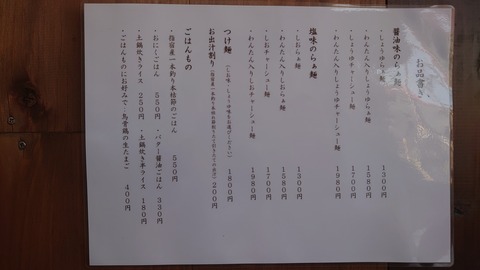 お品書き
醤油味のらぁ麺
・しょうゆらぁ麺 1300円
・わんたん入りしょうゆらぁ麺 1580円
・しょうゆチャーシュー麺 1700円
・わんたん入りしょうゆチャーシュー麺 1980円
塩味のらぁ麺
・しおらぁ麺 1300円
・わんたん入りしおらぁ麺 1580円
・しおチャーシュー麺 1700円
・わんたん入りしおチャーシュー麺 1980円
つけ麺 (しお味・しょうゆ味をお選びください) 1800円
お出汁割り (指宿産一本釣り本枯節削りたて引きたての出汁) 200円
ごはんもの
・指宿産一本釣り本枯節のごはん 550円
・おにくごはん 550円 ・バター醤油ごはん 330円
・土鍋炊きライス 250円 ・土鍋炊き半ライス 180円
・ごはんものにお好みで 烏骨鶏の生たまご 400円